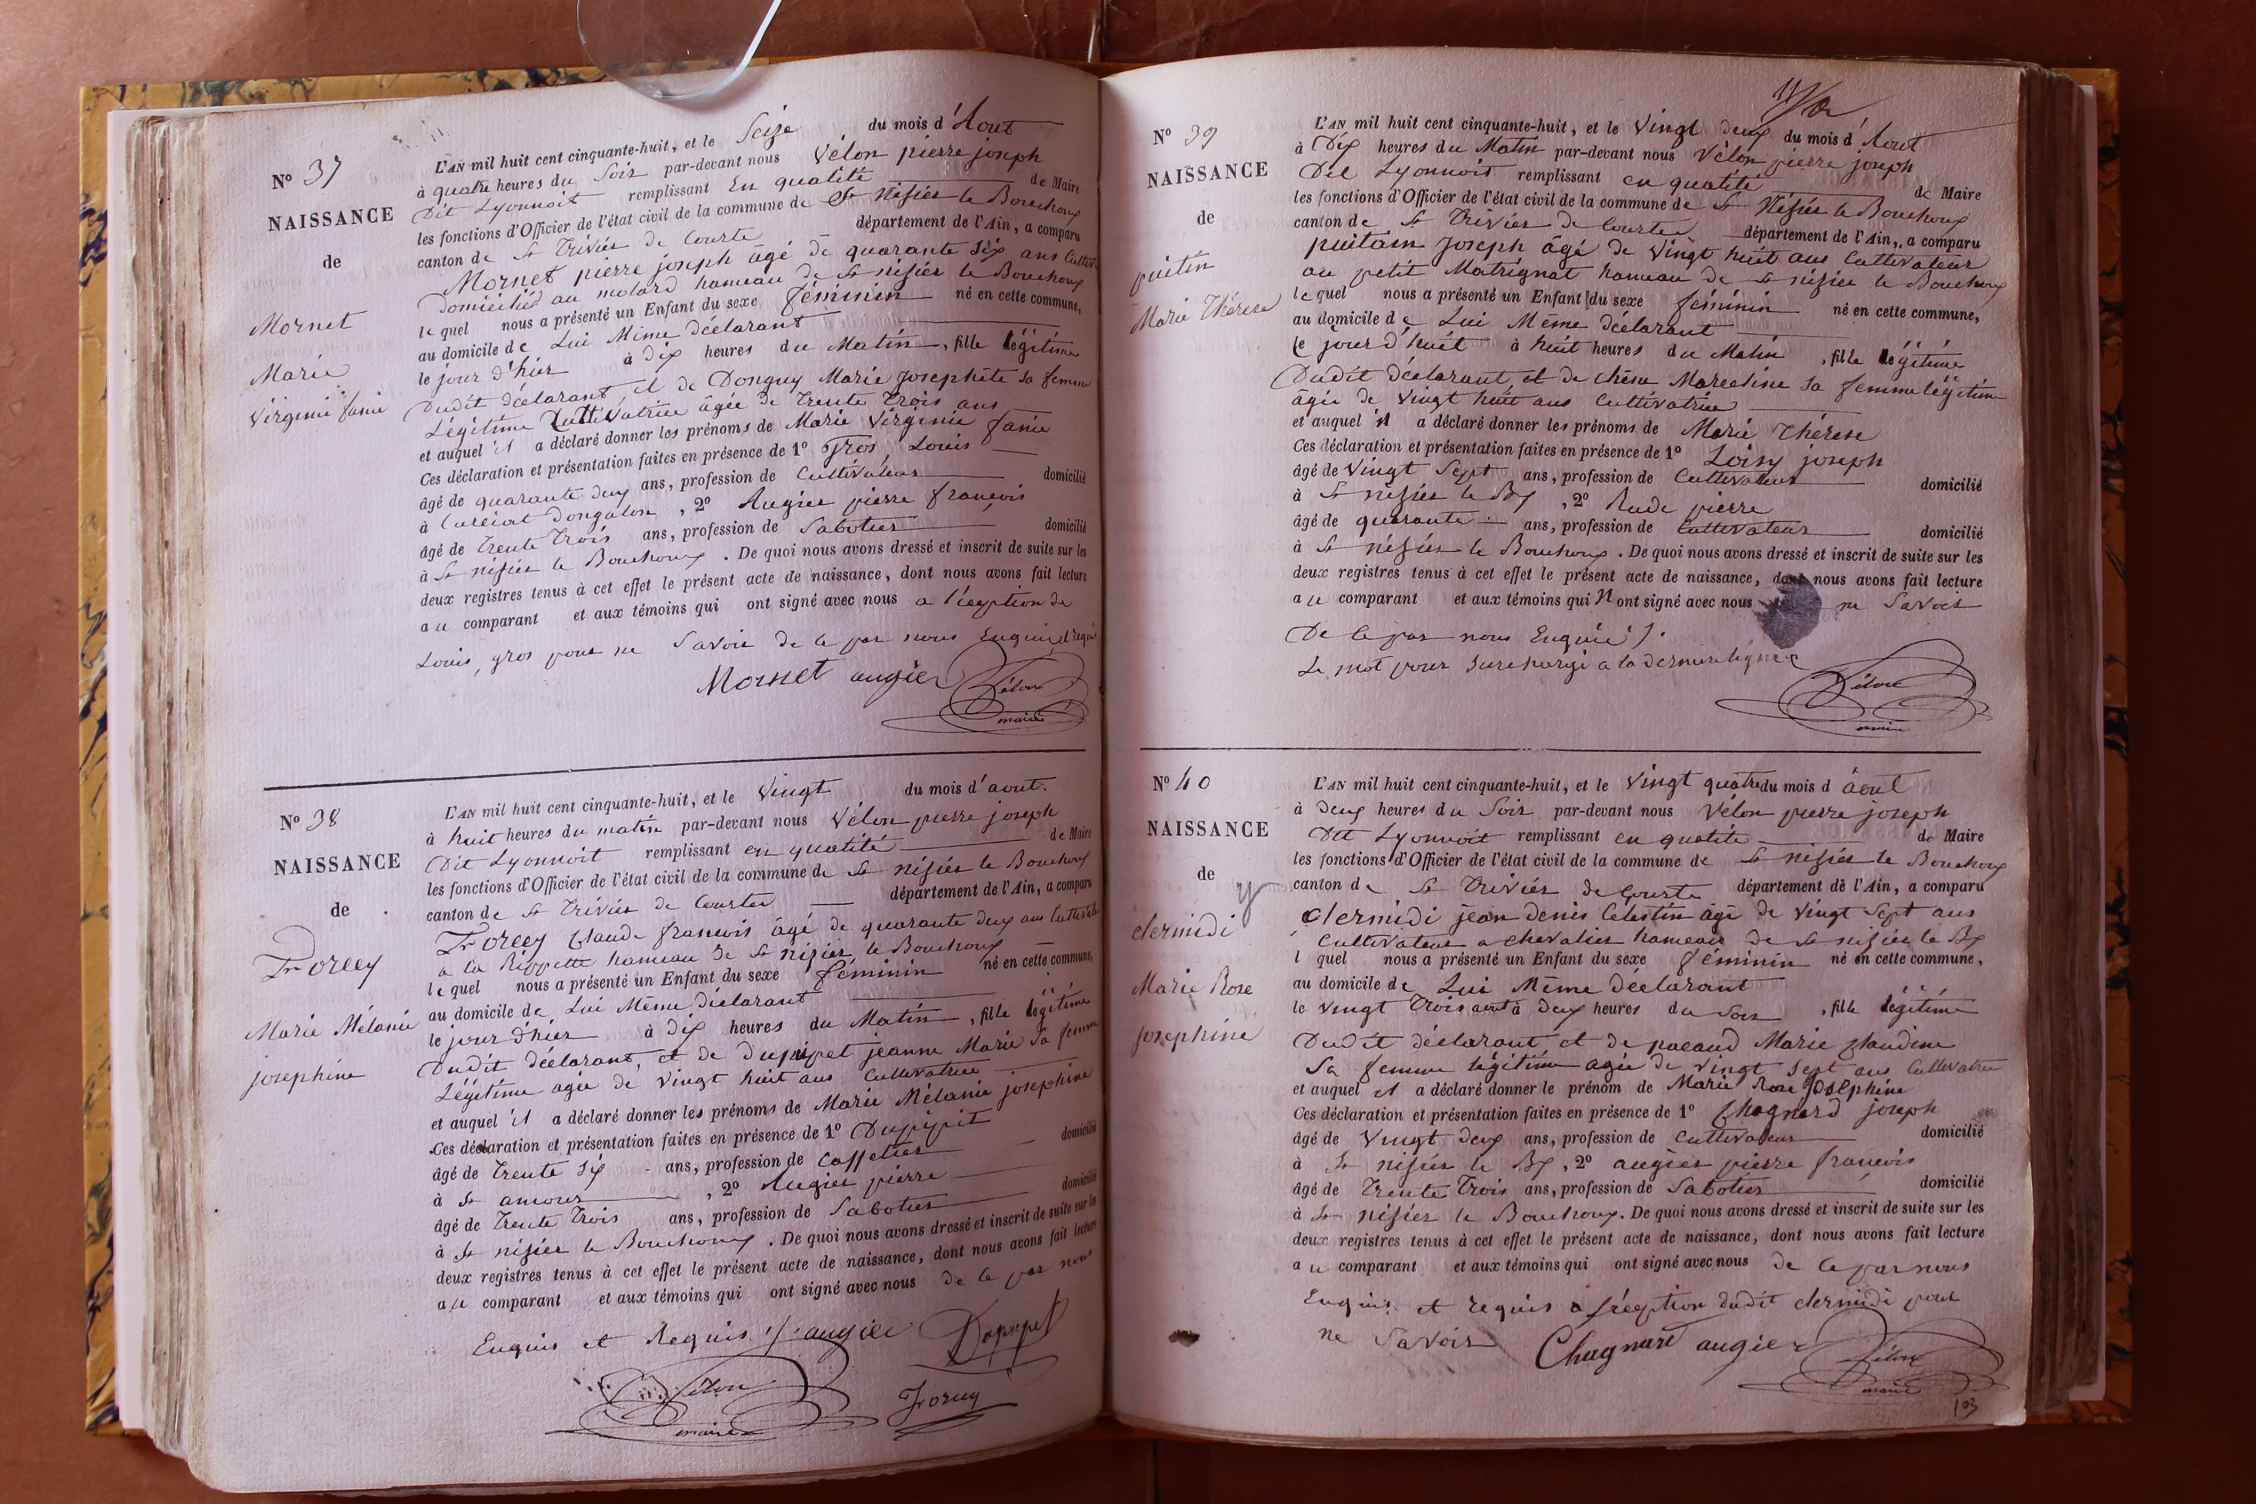 Nº 37
NAISSANCE
de
Mornet
Marie
Virginie fanie
L'AN mil huit cent cinquante-huit, et le Seize du mois d'Aout
à quatre heures du Soir par-devant nous Vélon pierre joseph
Dit Lyonnoit remplissant En qualité de Maire
les fonctions d'Officier de l'état civil de la commune de St Nizier le Bouchoux
canton de St Trivier de Courte département de l'Ain, a comparu
Mornet pierre joseph âgé de quarante Six ans
Domicilié au molard hameau de St nizier le Bouchoux
lequel nous a présenté un Enfant du sexe féminin né en cette commune,
au domicile de Lui Même déclarant
le jour d'hier à dix heures du Matin, fille légitime
Dudit déclarant, et de Donguy Marie Josephète sa femme
Légitime Cultivatrice âgée de Trente Trois ans
et auquel il a déclaré donner les prénoms de Marie Virginie fanie
Ces déclaration et présentation faites en présence de 1º Gros, Louis
âgé de quarante deux ans, profession de Cultivateur domicilié
à Curciat Dongalon, 2º Augier pierre françois
âgé de Trente Trois ans, profession de Sabotier domicilié
à St nizier le Bouchoux. De quoi nous avons dressé et inscrit de suite sur les
deux registres tenus à cet effet le présent acte de naissance, dont nous avons fait lecture
au comparant et aux témoins qui ont signé avec nous a l'éception de
Louis, gros pour ne Savoir de ce par nous Enquis
Mornet augier Vélon
maire
Nº 38
NAISSANCE
de
Forcey
Marie Mélanie
josephine
L'AN mil huit cent cinquante-huit, et le Vingt du mois d'aout.
à huit heures du matin par-devant nous Vélon pierre joseph
Dit Lyonnoit remplissant en qualité de Maire
les fonctions d'Officier de l'état civil de la commune de St nizier le Bouchoux
canton de St Trivier de Courte département de l'Ain, a comparu
Forcey Claude francois âgé de quarante deux ans
a la Rippette hameau de St nizier le Bouchoux
lequel nous a présenté un Enfant du sexe féminin né en cette commune,
au domicile de Lui Même déclarant
le jour d'hier à dix heures du Matin, fille légitime
Dudit déclarant, et de dupipet jeanne Marie Sa femme
Légitime agée de Vingt huit ans Cultivatrice
et auquel il a déclaré donner les prénoms de Marie Mélanie josephine
Ces déclaration et présentation faites en présence de 1º
âgé de Trente Six ans, profession de Caffetier domicilié
à St amour, 2º Augier pierre
âgé de Trente Trois ans, profession de Sabotier domicilié
à St nizier le Bouchoux. De quoi nous avons dressé et inscrit de suite sur les
deux registres tenus à cet effet le présent acte de naissance, dont nous avons fait lecture
au comparant et aux témoins qui ont signé avec nous de ce par nous
Enquis et Requis augier
Vélon
maire
Nº 39
NAISSANCE
de
puitin
Marie Thérese
L'AN mil huit cent cinquante-huit, et le Vingt deux du mois d'Aout
à Dix heures du Matin par-devant nous Vélon pierre joseph
Dit Lyonnoit remplissant en qualité de Maire
les fonctions d'Officier de l'état civil de la commune de St Nizier le Bouchoux
canton de St Trivier de Courte département de l'Ain, a comparu
puitain joseph âgé de Vingt huit ans Cultivateur
au petit Matrignat hameau de St nizier le Bouchoux
lequel nous a présenté un Enfant du sexe féminin né en cette commune,
au domicile de Lui Même déclarant
le jour d'huit à huit heures du Matin, fille légitime
Dudit déclarant, et de chêne Marechine Sa femme légitime
âgée de Vingt huit ans Cultivatrice
et auquel il a déclaré donner les prénoms de Marie Thérese
Ces déclaration et présentation faites en présence de 1º Loisy joseph
âgé de Vingt Sept ans, profession de Cultivateur domicilié
à St nizier le Bx, 2º Rude pierre
âgé de quarante ans, profession de Cultivateur domicilié
à St nizier le Bouchoux. De quoi nous avons dressé et inscrit de suite sur les
deux registres tenus à cet effet le présent acte de naissance, dont nous avons fait lecture
au comparant et aux témoins qui N ont signé avec nous ne Savoir
De ce par nous Enquis
Le mot pour surchargé a la derniere ligne
Vélon
maire
Nº 40
NAISSANCE
de
clermidi
Marie Rose
josephine
L'AN mil huit cent cinquante-huit, et le Vingt quatre du mois d'août
à deux heures du Soir par-devant nous Vélon pierre joseph
Dit Lyonnoit remplissant en qualité de Maire
les fonctions d'Officier de l'état civil de la commune de St nizier le Bouchoux
canton de St Trivier de Courte département de l'Ain, a comparu
Clermidi jean denis Celestin âgé de Vingt Sept ans
Cultivateur a chevalier hameau de St nizier le Bx
l quel nous a présenté un Enfant du sexe féminin né en cette commune,
au domicile de Lui Même Déclarant
le Vingt Trois aout à deux heures du Soir, fille légitime
Dudit déclarant et de pacaud Marie Claudine
Sa femme légitime agée de Vingt Sept ans Cultivatrice
et auquel il a déclaré donner le prénom de Marie Rose Josephine
Ces déclaration et présentation faites en présence de 1º Chagnard joseph
âgé de Vingt deux ans, profession de Cultivateur domicilié
à St nizier le Bx, 2º augier pierre françois
âgé de Trente Trois ans, profession de Sabotier domicilié
à St nizier le Bouchoux. De quoi nous avons dressé et inscrit de suite sur les
deux registres tenus à cet effet le présent acte de naissance, dont nous avons fait lecture
au comparant et aux témoins qui ont signé avec nous de ce par nous
Enquis et requis a l'éception dudit clermidi pour
ne Savoir Chagnard augier Vélon
maire
103